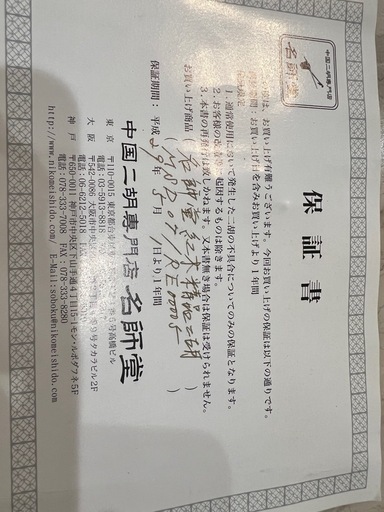 中国二胡専門店
名師堂
保証書
お買い上げ有難うございます。今回お買い上げの保証は以下の通りです。
お買い上げ日を含みお買い上げより1年間
1. 通常使用において発生した二胡の不具合についてのみの保証となります。
2. お客様の改造等に起因するものは除きます。
3. 本書の再発行は致しかねます。又本書無き場合は保証は受けられません。
お買い上げ商品
名師堂紅木精品二胡
保証期間: 平成29年5月 日より1年間
中国二胡専門店 名師堂
東京 〒110-0015 東京都台東区
号高橋ビル
電話: 03-5913-8818
大阪 〒542-0086 大阪市中央区
9号タカラビル2F
電話: 06-6212-5018
神戸 〒650-0011 神戸市中央区下山手通
モンシルボダフネ5F
電話: 078-333-7008 FAX: 078-333-8280
http://www.nikomeishido.com/ E-Mail:soboku@nikomeishido.com